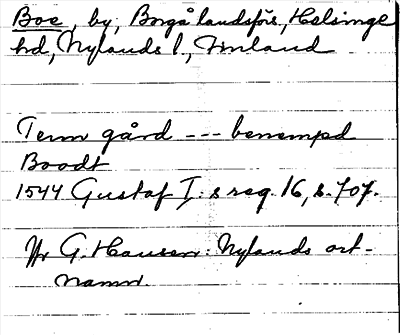 Boe, by, Borgå landsförs, Helsinge
hd, Nylands l., Finland
Tenn gård --- benempd
Boodt
1544 Gustaf I:s reg. 16, s. 707.
Ur G. Hausen: Nylands ort-
namn.